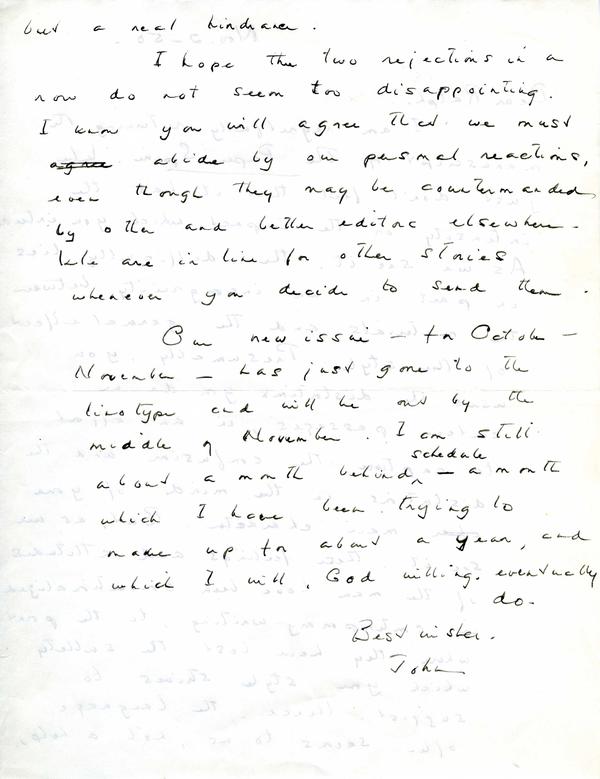 but a real hindrance.
I hope the two rejections in a
row do not seem too disappointing.
I know you will agree that we must
agree abide by our personal reactions,
even though they may be countermanded
by other and better editors elsewhere.
We are in line for other stories
whenever you decide to send them.
Our new issue – for October –
November – has just gone to the
linotype and will be out by the
middle of November. I am still
schedule
about a month behind ^ – a month
which I have been trying to
make up for about a year, and
which I will, God willing, eventually
do.
Best wishes.
John